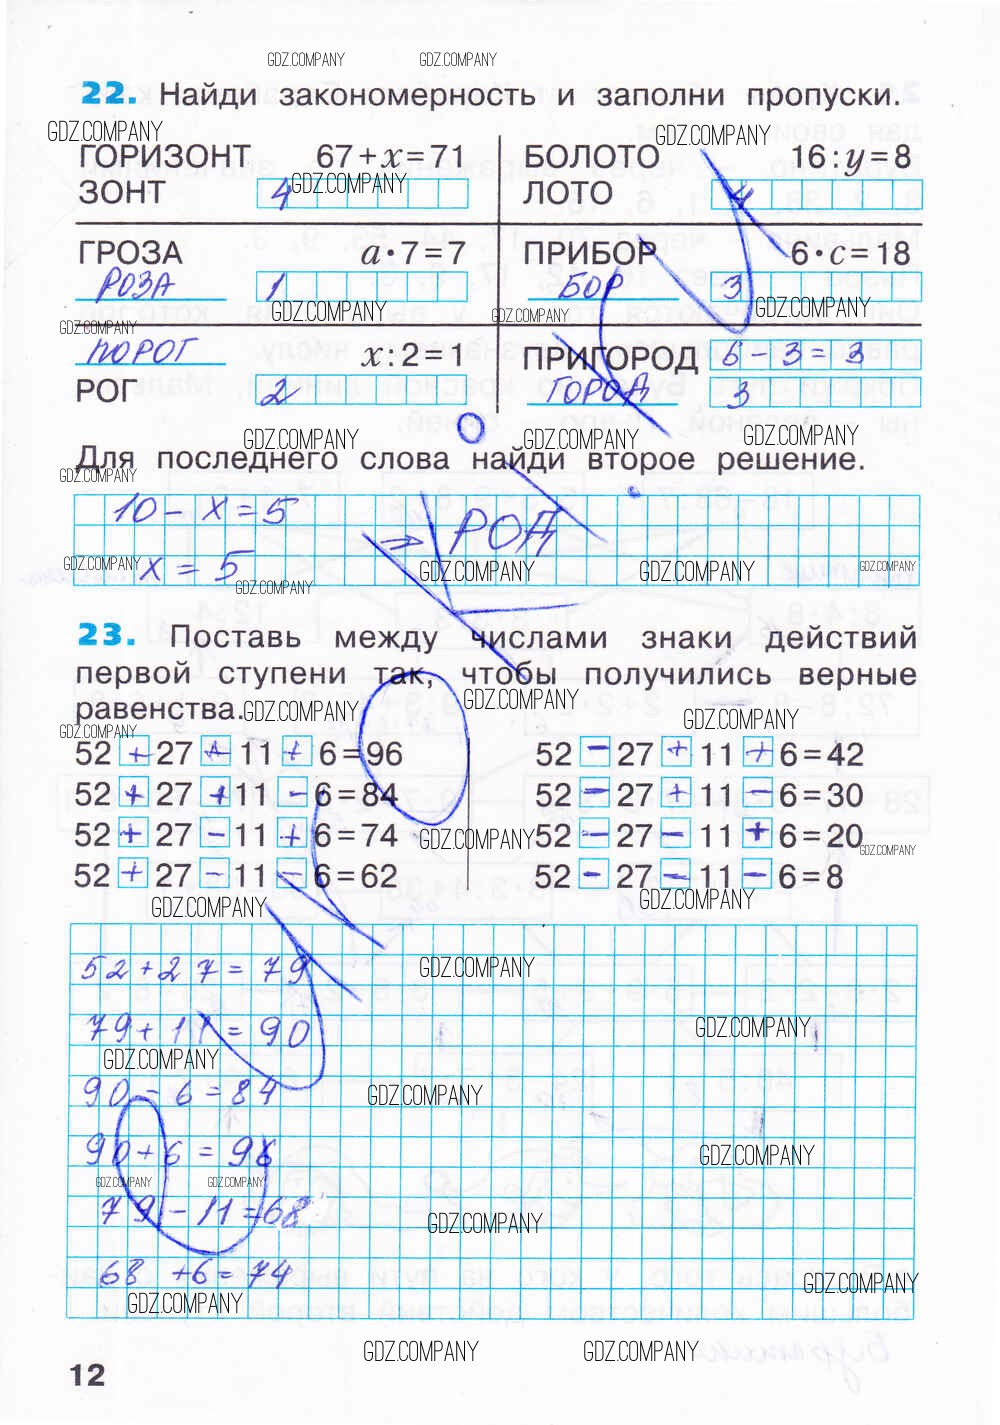 GDZ.COMPANY GDZ.COMPANY
22. Найди закономерность и заполни пропуски.
GDZ.COMPANY GDZ.COMPANY
ГОРИЗОНТ 67+x=71 БОЛОТО 16:y=8
ЗОНТ 4 GDZ.COMPANY ЛОТО 4
ГРОЗА a·7=7 ПРИБОР 6·c=18
РОЗА 1 БОР 3
GDZ.COMPANY GDZ.COMPANY GDZ.COMPANY GDZ.COMPANY
ПОРОГ x:2=1 ПРИГОРОД 6-3=3
РОГ 2 ГОРОД 3
GDZ.COMPANY GDZ.COMPANY GDZ.COMPANY
Для последнего слова найди второе решение.
GDZ.COMPANY
10-x=5
x=5 → РОД
GDZ.COMPANY GDZ.COMPANY GDZ.COMPANY GDZ.COMPANY
GDZ.COMPANY
23. Поставь между числами знаки действий
первой ступени так, чтобы получились верные
равенства. GDZ.COMPANY GDZ.COMPANY
GDZ.COMPANY GDZ.COMPANY
52 + 27 + 11 + 6=96 52 - 27 + 11 + 6=42
52 + 27 + 11 - 6=84 52 - 27 + 11 - 6=30
52 + 27 - 11 + 6=74 52 - 27 - 11 + 6=20
GDZ.COMPANY GDZ.COMPANY
52 + 27 - 11 - 6=62 52 - 27 - 11 - 6=8
GDZ.COMPANY GDZ.COMPANY
52+27=79 GDZ.COMPANY
79+11=90 GDZ.COMPANY
GDZ.COMPANY
90-6=84 GDZ.COMPANY
90+6=96 GDZ.COMPANY
GDZ.COMPANY GDZ.COMPANY
79-11=68 GDZ.COMPANY
68+6=74 GDZ.COMPANY
GDZ.COMPANY
GDZ.COMPANY GDZ.COMPANY
12